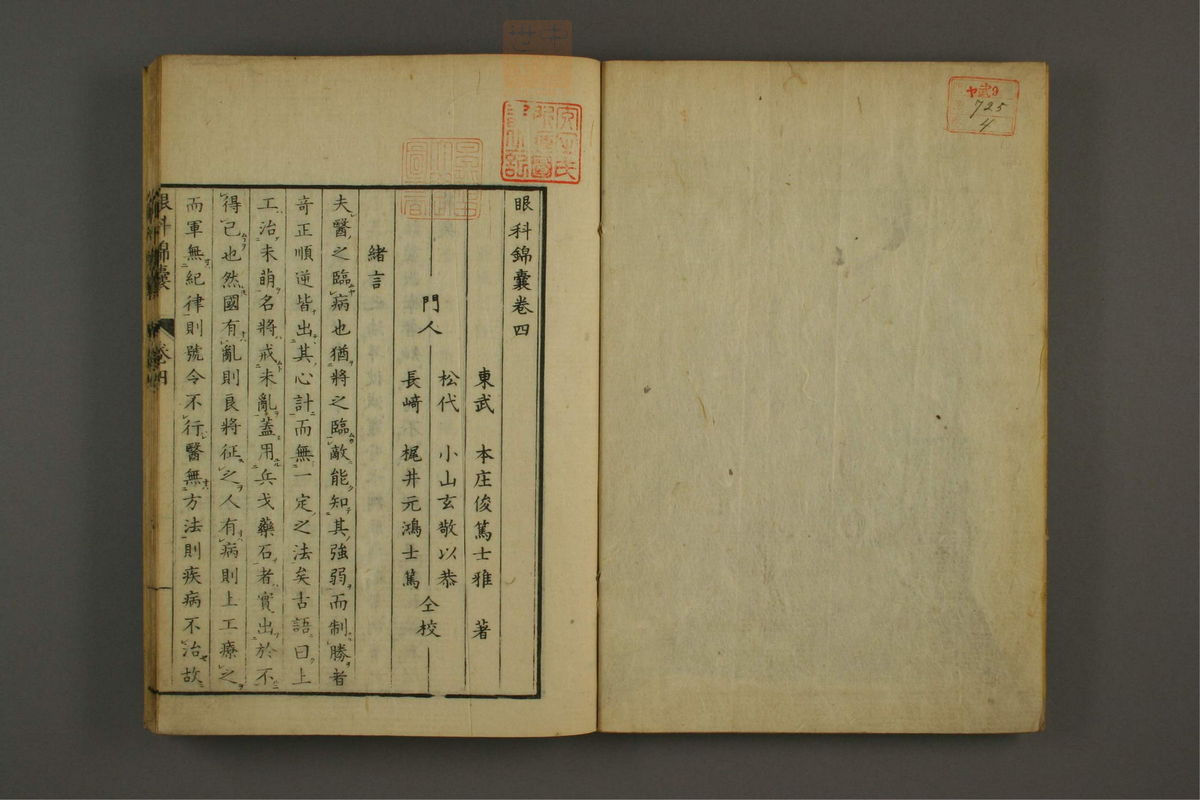 ヤ武9
725
4
眼科錦囊卷四
東武 本庄俊篤士雅 著
門人
松代 小山玄敬以恭
長﨑 梶井元鴻士篤
仝校
緒言
夫醫之臨病也猶將之臨敵能知其強弱而制勝者
竒正順逆皆出其心計而無一定之法矣古語曰上
工治未萌名將戒未亂蓋用兵戈藥石者實出於不
得已也然國有亂則良將征之人有病則上工療之
而軍無紀律則號令不行醫無方法則疾病不治故
眼科錦囊 卷四